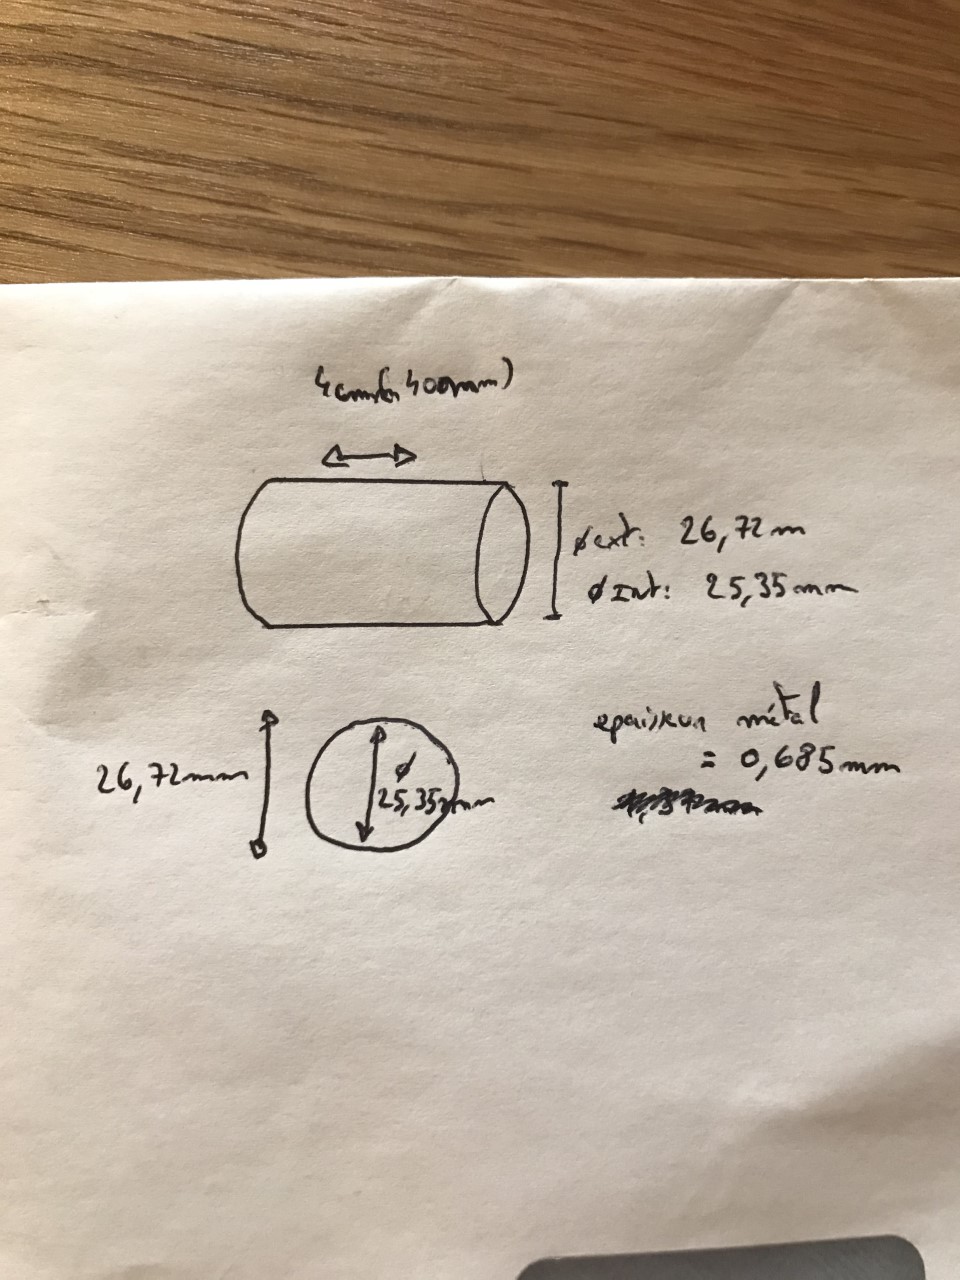 4cm (ou 400mm)
ø ext: 26,72 m
ø Int: 25,35 mm
epaisseur métal
= 0,685mm
26,72mm
ø
25,35mm